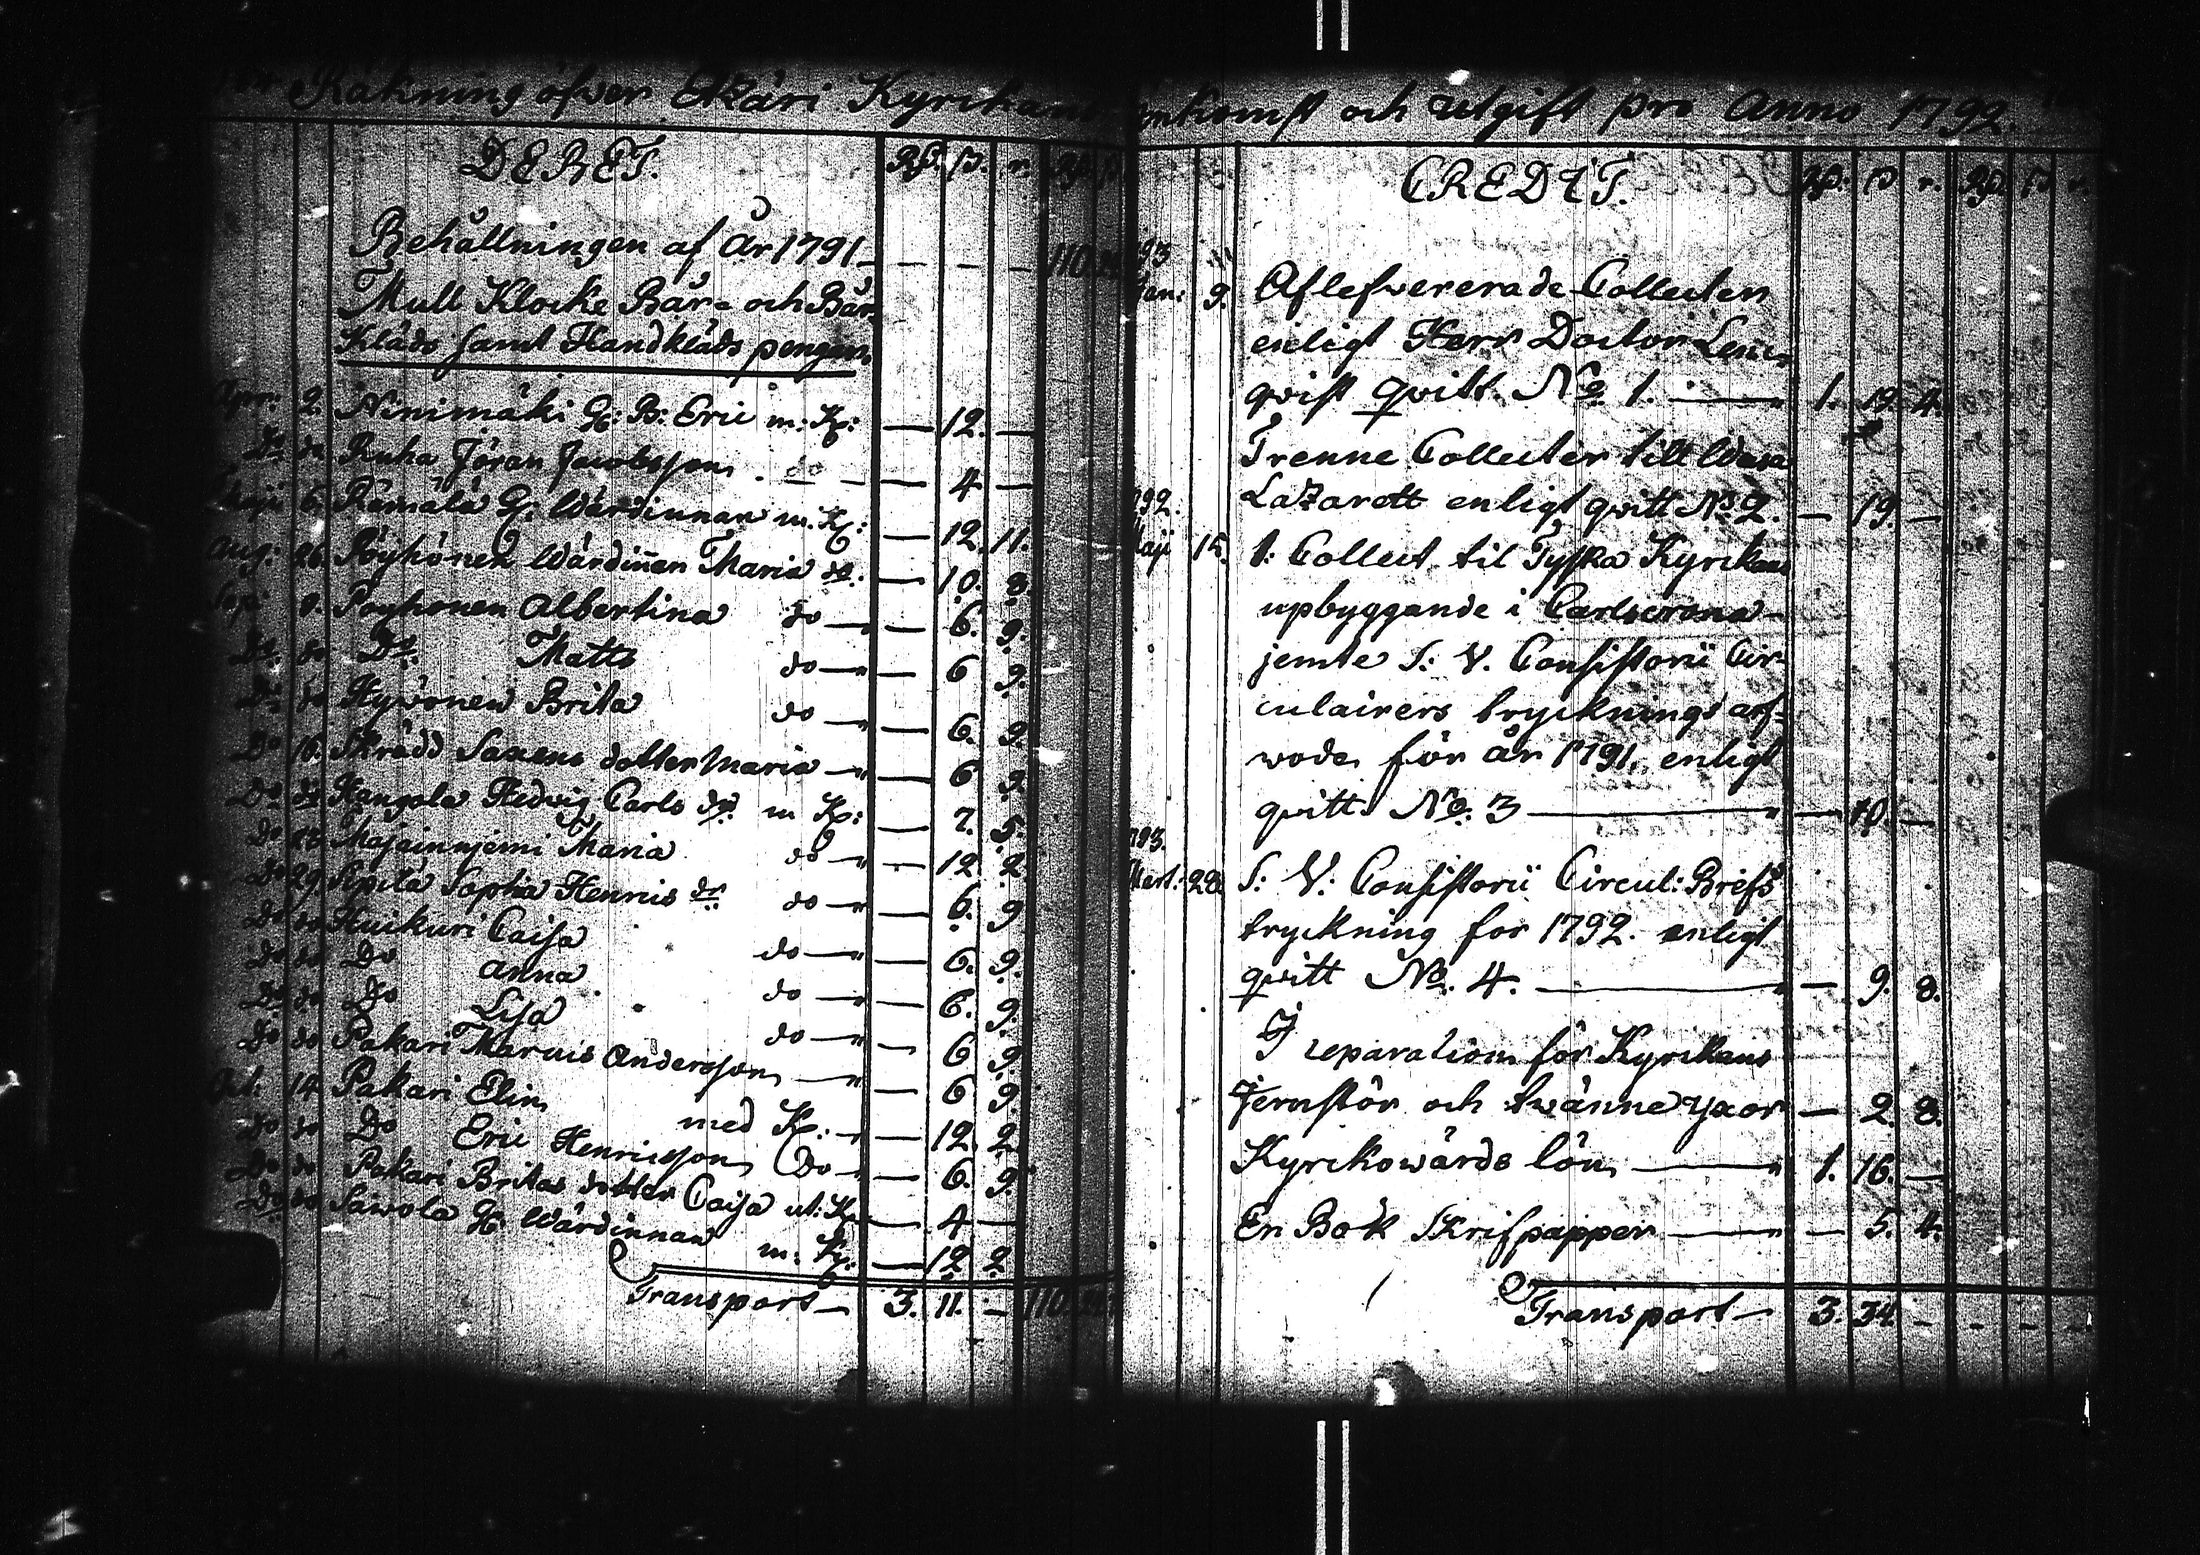 Räkning öfver Etzäri Kyrckans inkomst och utgift pro Anno 1792.
DEBET. Rd. s. r. Rd. s.
Behållningen af År 1791 — — — — 110.
Mull Klocke Bår- och Bår
Kläds samt Handkläds pengar
Apr: 2. Ninimäki G: B: Eric m: K: — 12. —
Do do Ruha Jöran Jacobsson do — 4 —
Maji 6. Rämälä G: Wärdinnan m. K: — 12. 11.
Aug: 26. Pöyhönen Wärdinnen Maria do. — 10. 8.
Sept 9. Pöyhönen Albertina do — 6. 9.
Do do Do Matts do — 6 9.
Do do Hyvönen Brita do — 6. 9.
Do 16. Skrädd Saxens dotter Maria — 6 9.
Do do Hangola Hedvig Carls dr. m K: — 7. 5.
Do Majainniemi Maria do — 12. 2.
Do 29. Sipilä Sopha Henrics dr. do — 6. 9
Do do Huikuri Caisa do — 6. 9.
Do do Do Anna do — 6. 9.
Do do Do Lisa do — 6 9.
Do do Pakari Marcus Andersson — 6 9.
Oct. 14. Pakari Elin med K: — 12. 2.
Do do Do Eric Henricsson Do — 6. 9.
Do do Pakari Britas dotter Caisa ut: K — 4 —
Do do Säwola G: Wärdinnan m: K: — 12 2.
Transport — 3. 11. — 110.
CREDIT. Rd: s r. Rd. s r.
793
Jan: 9. Aflefvererade Collecten
enligt Herr Doctor Lenc
qvist qvitt. No. 1. — 1. 19. 4.
Trenne Collecter till Wasa
792. Lazarett enligt qvitt No 2. — 19. —
Maji 15. 1: Collect til Tyska Kyrckans
upbyggande i Carlscrona
jemte S: V. Consistorii Cir-
culairers trycknings arf-
wode för år 1791, enligt
qvitt No. 3 — — 10. —
793.
Mart: 28. S: V: Consistorii Circul: Brefs
tryckning for 1792. enligt
qvitt No. 4. — — 9. 8.
I reparation för Kyrckans
Jernstör och twänne yxor — 2. 8.
Kyrckowärds lön — 1. 16. —
En Bok Skrifpapper — — 5. 4.
Transport — 3. 34 — — — —